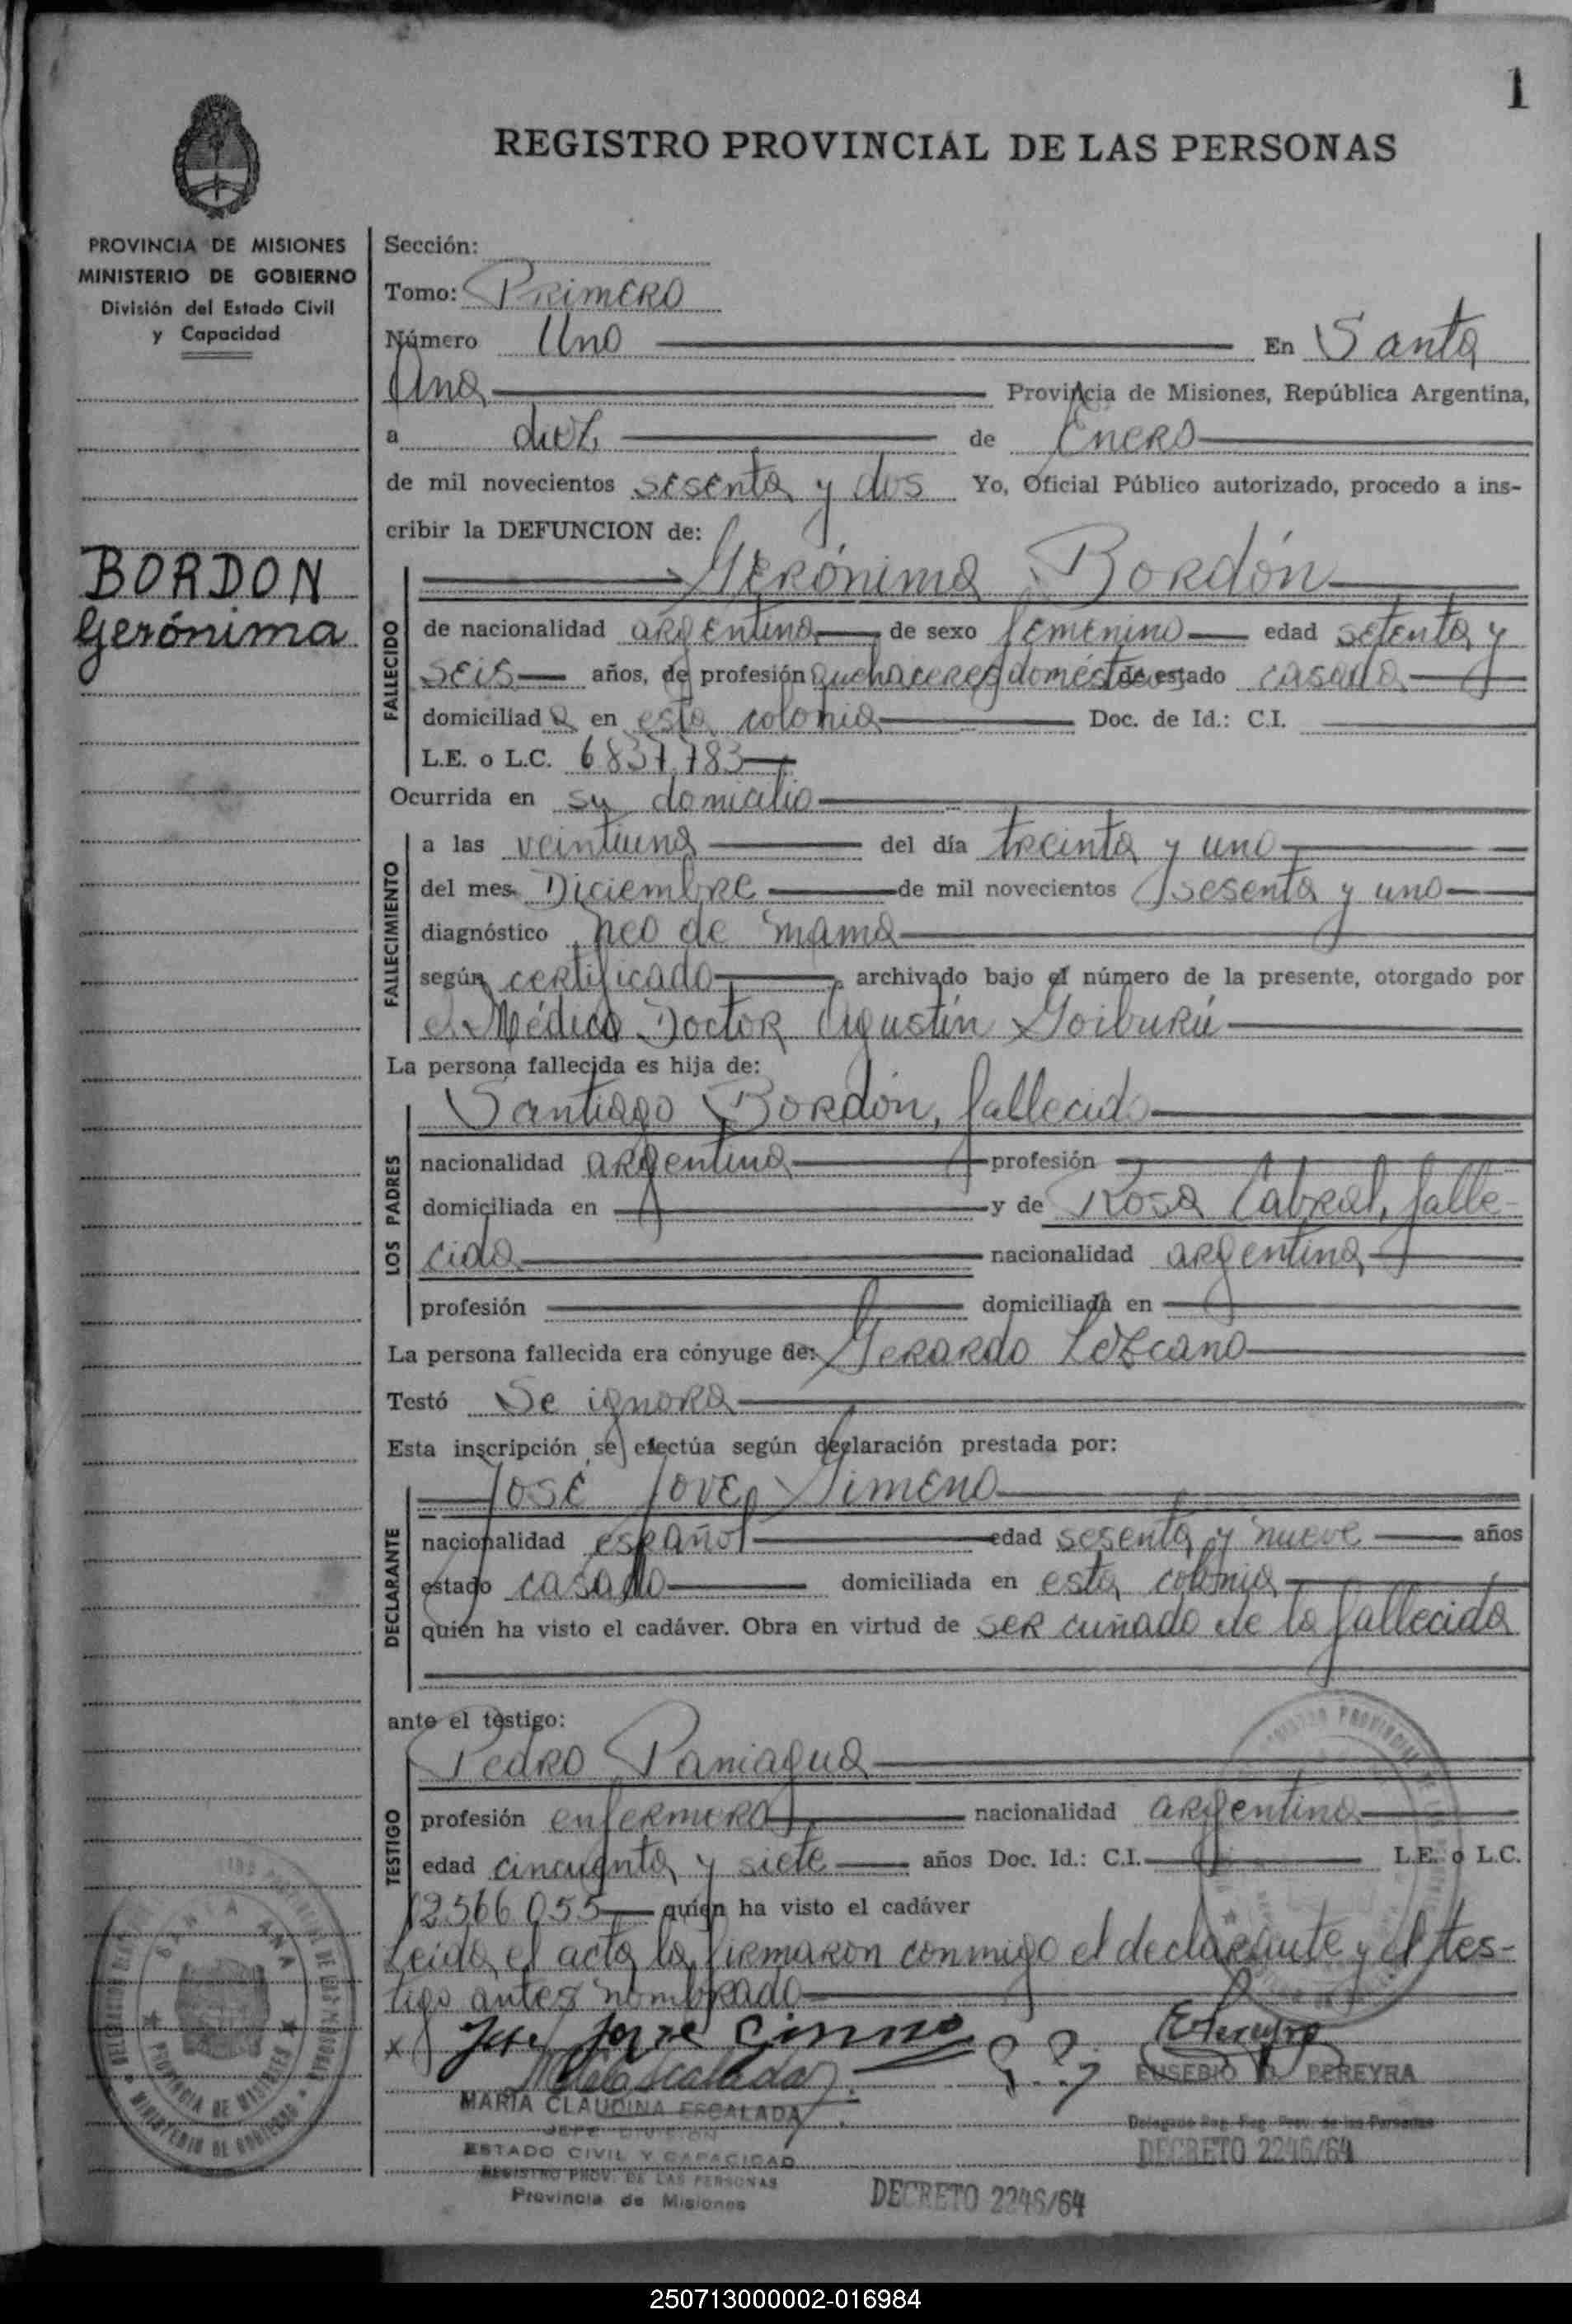 1
REGISTRO PROVINCIAL DE LAS PERSONAS
PROVINCIA DE MISIONES
MINISTERIO DE GOBIERNO
División del Estado Civil
y Capacidad
BORDON
Gerónima
Sección:
Tomo: PRIMERO
Número Uno En Santa
Ana Provincia de Misiones, República Argentina,
a diez de Enero
de mil novecientos sesenta y dos Yo, Oficial Público autorizado, procedo a ins-
cribir la DEFUNCION de:
Gerónima Bordón
FALLECIDO
de nacionalidad argentina de sexo femenino edad setenta y
seis años, de profesión quehaceres domésticos de estado casada
domiciliada en esta colonia Doc. de Id.: C.I.
L.E. o L.C. 6837.783
Ocurrida en su domicilio
FALLECIMIENTO
a las veintiuna del día treinta y uno
del mes Diciembre de mil novecientos sesenta y uno
diagnóstico neo de mama
según certificado, archivado bajo el número de la presente, otorgado por
el Médico Doctor Agustín Goiburú
La persona fallecida es hija de:
LOS PADRES
Santiago Bordón, fallecido
nacionalidad argentina profesión
domiciliada en y de Rosa Cabral, falle-
cida nacionalidad argentina
profesión domiciliada en
La persona fallecida era cónyuge de: Gerardo Lezcano
Testó Se ignora
Esta inscripción se efectúa según declaración prestada por:
DECLARANTE
José Jover Gimeno
nacionalidad español edad sesenta y nueve años
estado casado domiciliada en esta colonia
quién ha visto el cadáver. Obra en virtud de ser cuñado de la fallecida
ante el testigo:
TESTIGO
Pedro Paniagua
profesión enfermero nacionalidad argentina
edad cincuenta y siete años Doc. Id.: C.I. L.E. o L.C.
2.566.055 quien ha visto el cadáver
Leida el acta la firmaron conmigo el declarante y el tes-
tigo antes nombrado
MARIA CLAUDINA ESCALADA
JEFE DIVISION
ESTADO CIVIL Y CAPACIDAD
REGISTRO PROV. DE LAS PERSONAS
Provincia de Misiones
EUSEBIO PEREYRA
Delegado Reg. Prov. de las Personas
DECRETO 2246/64
DECRETO 2246/64
SANTA ANA
PROVINCIA DE MISIONES
MINISTERIO DE GOBIERNO
250713000002-016984